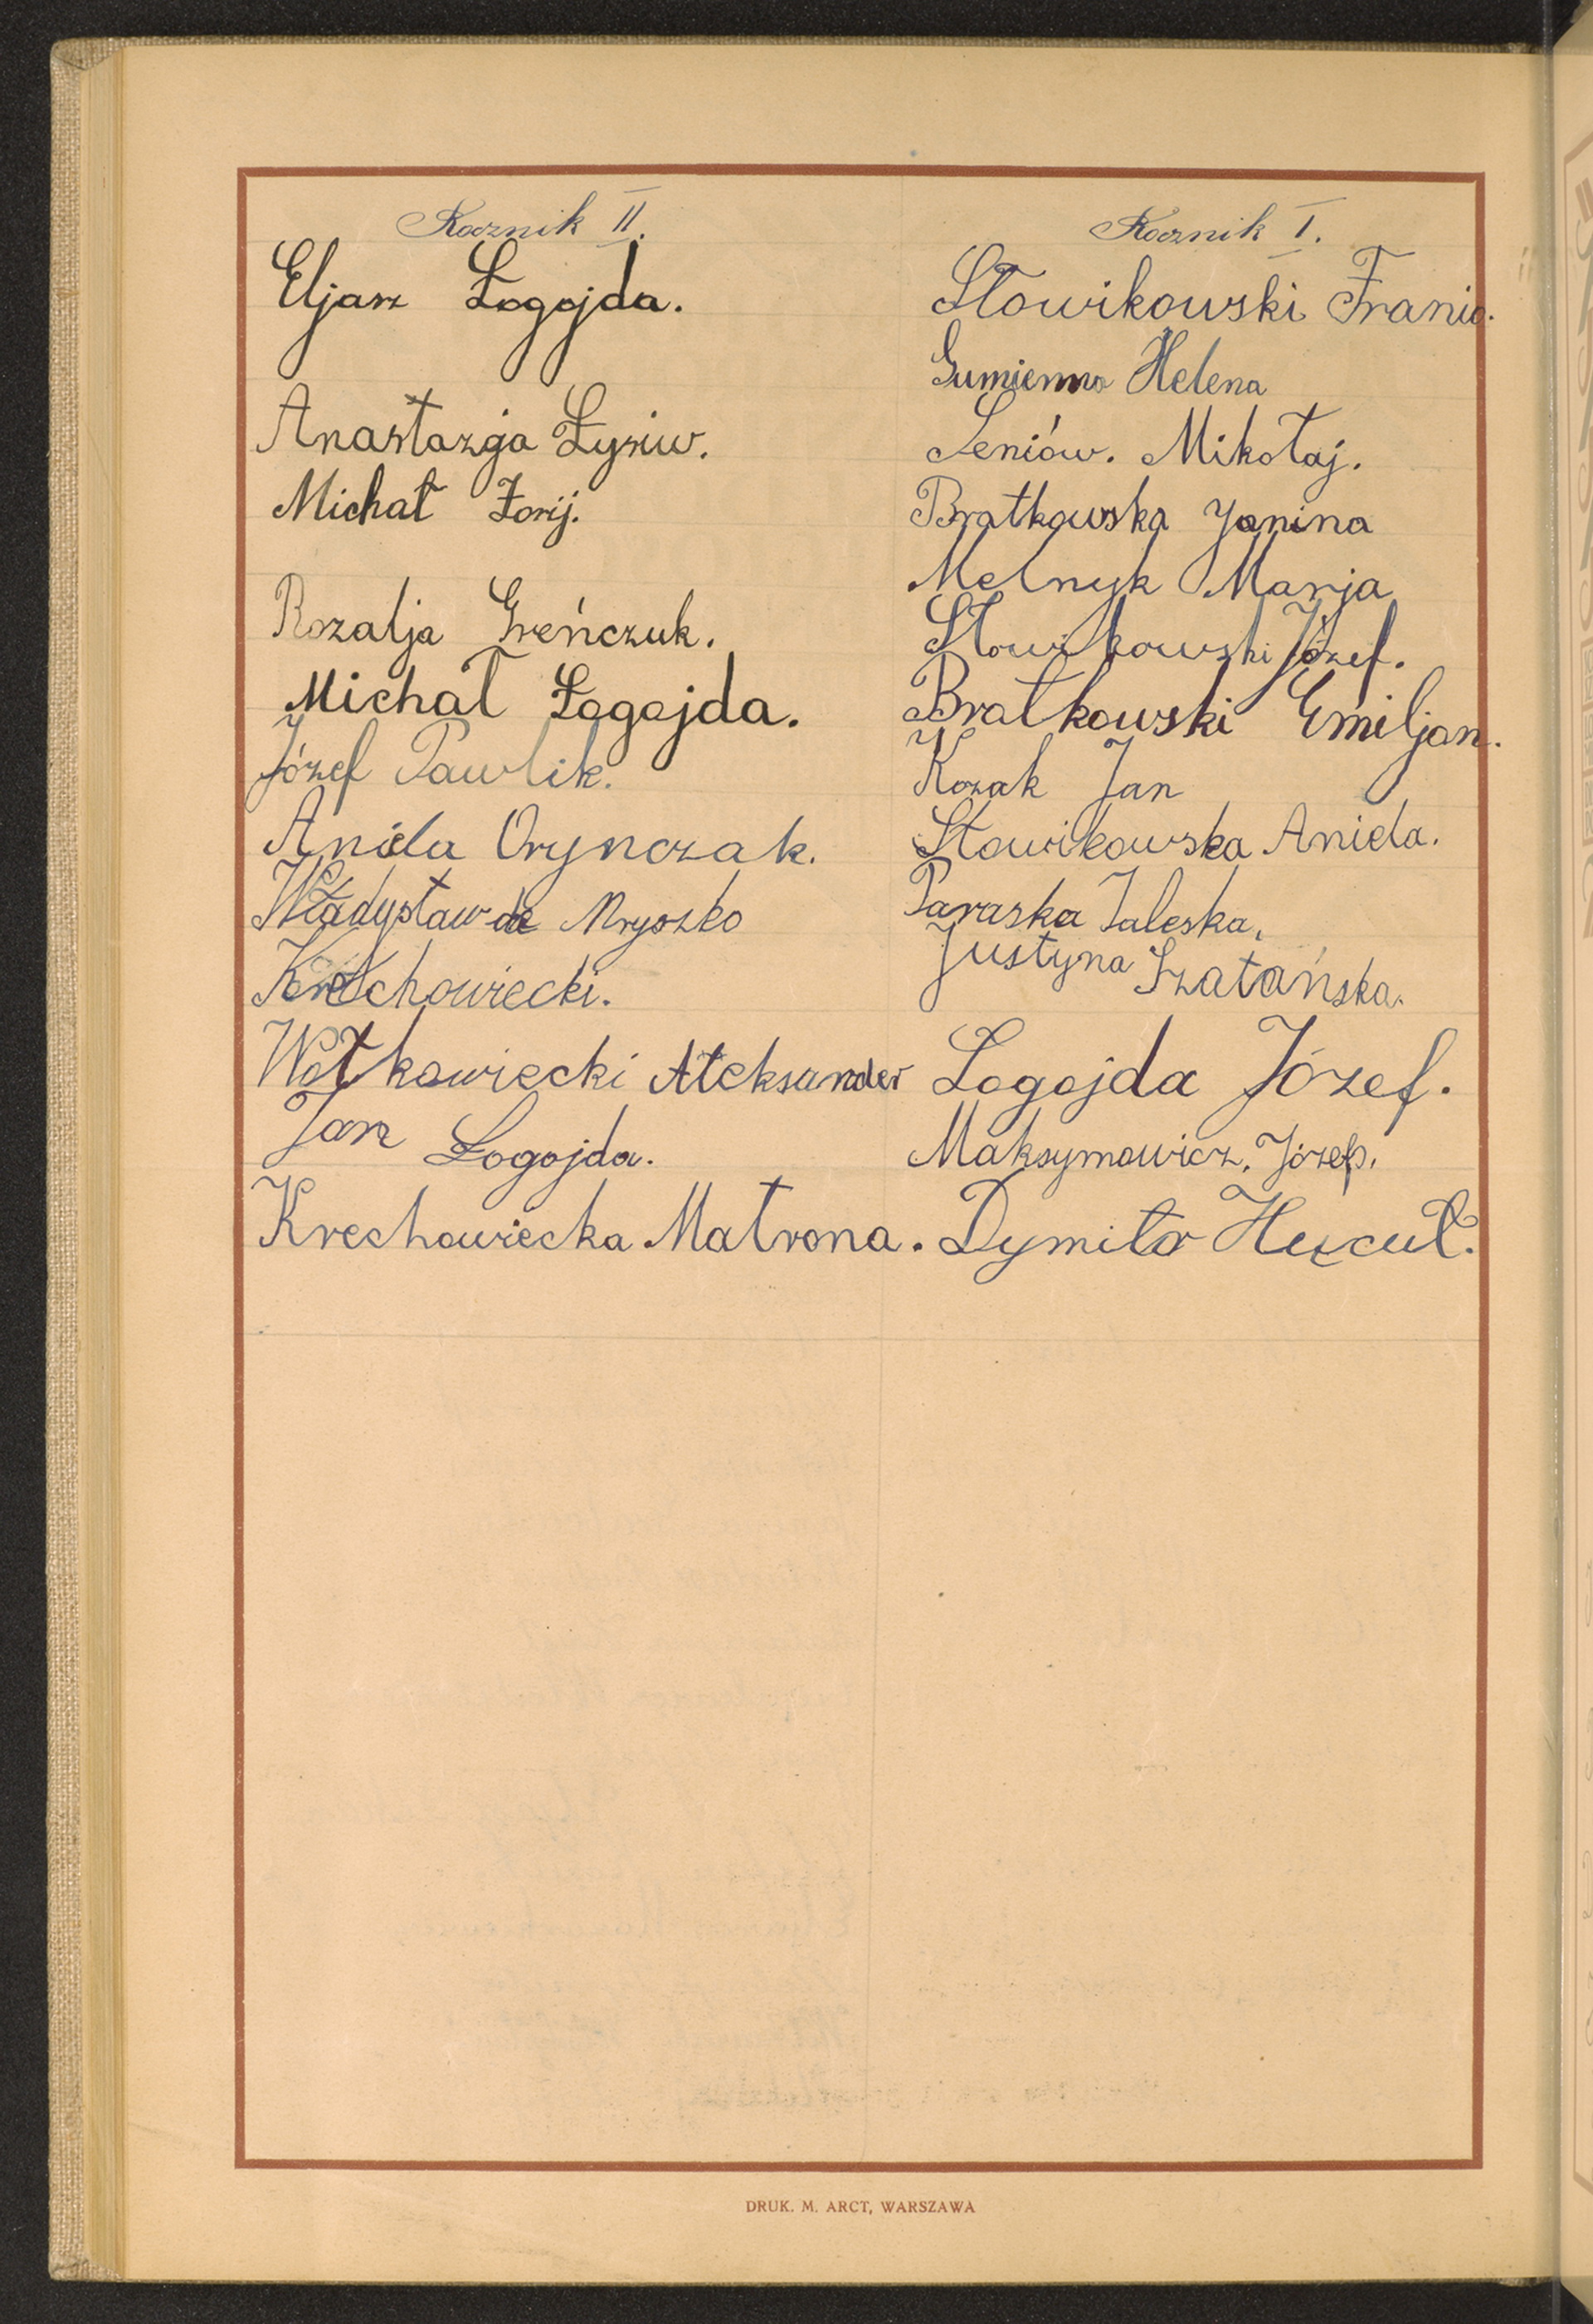 Rocznik II.
Eljasz Łogojda.
Anastazja Łysiw.
Michał Żorij.
Rozalja Greńczuk.
Michał Łogojda.
Józef Pawlik.
Aniela Orynczak.
Władysław de Mryozko
Krechowiecki.
Wołkowiecki Aleksander
Jan Łogojda.
Krechowiecka Matrona.
Rocznik I.
Słowikowski Franio.
Gumienna Helena
Seniów. Mikołaj.
Bratkowska Janina
Melnyk Marja
Słowikowski Józef.
Bratkowski Emiljan.
Kozak Jan
Słowikowska Aniela.
Paraska Zaleska,
Justyna Szatańska.
Łogojda Józef.
Maksymowicz, Józef.
Dymitr Hucuł.
DRUK. M. ARCT, WARSZAWA